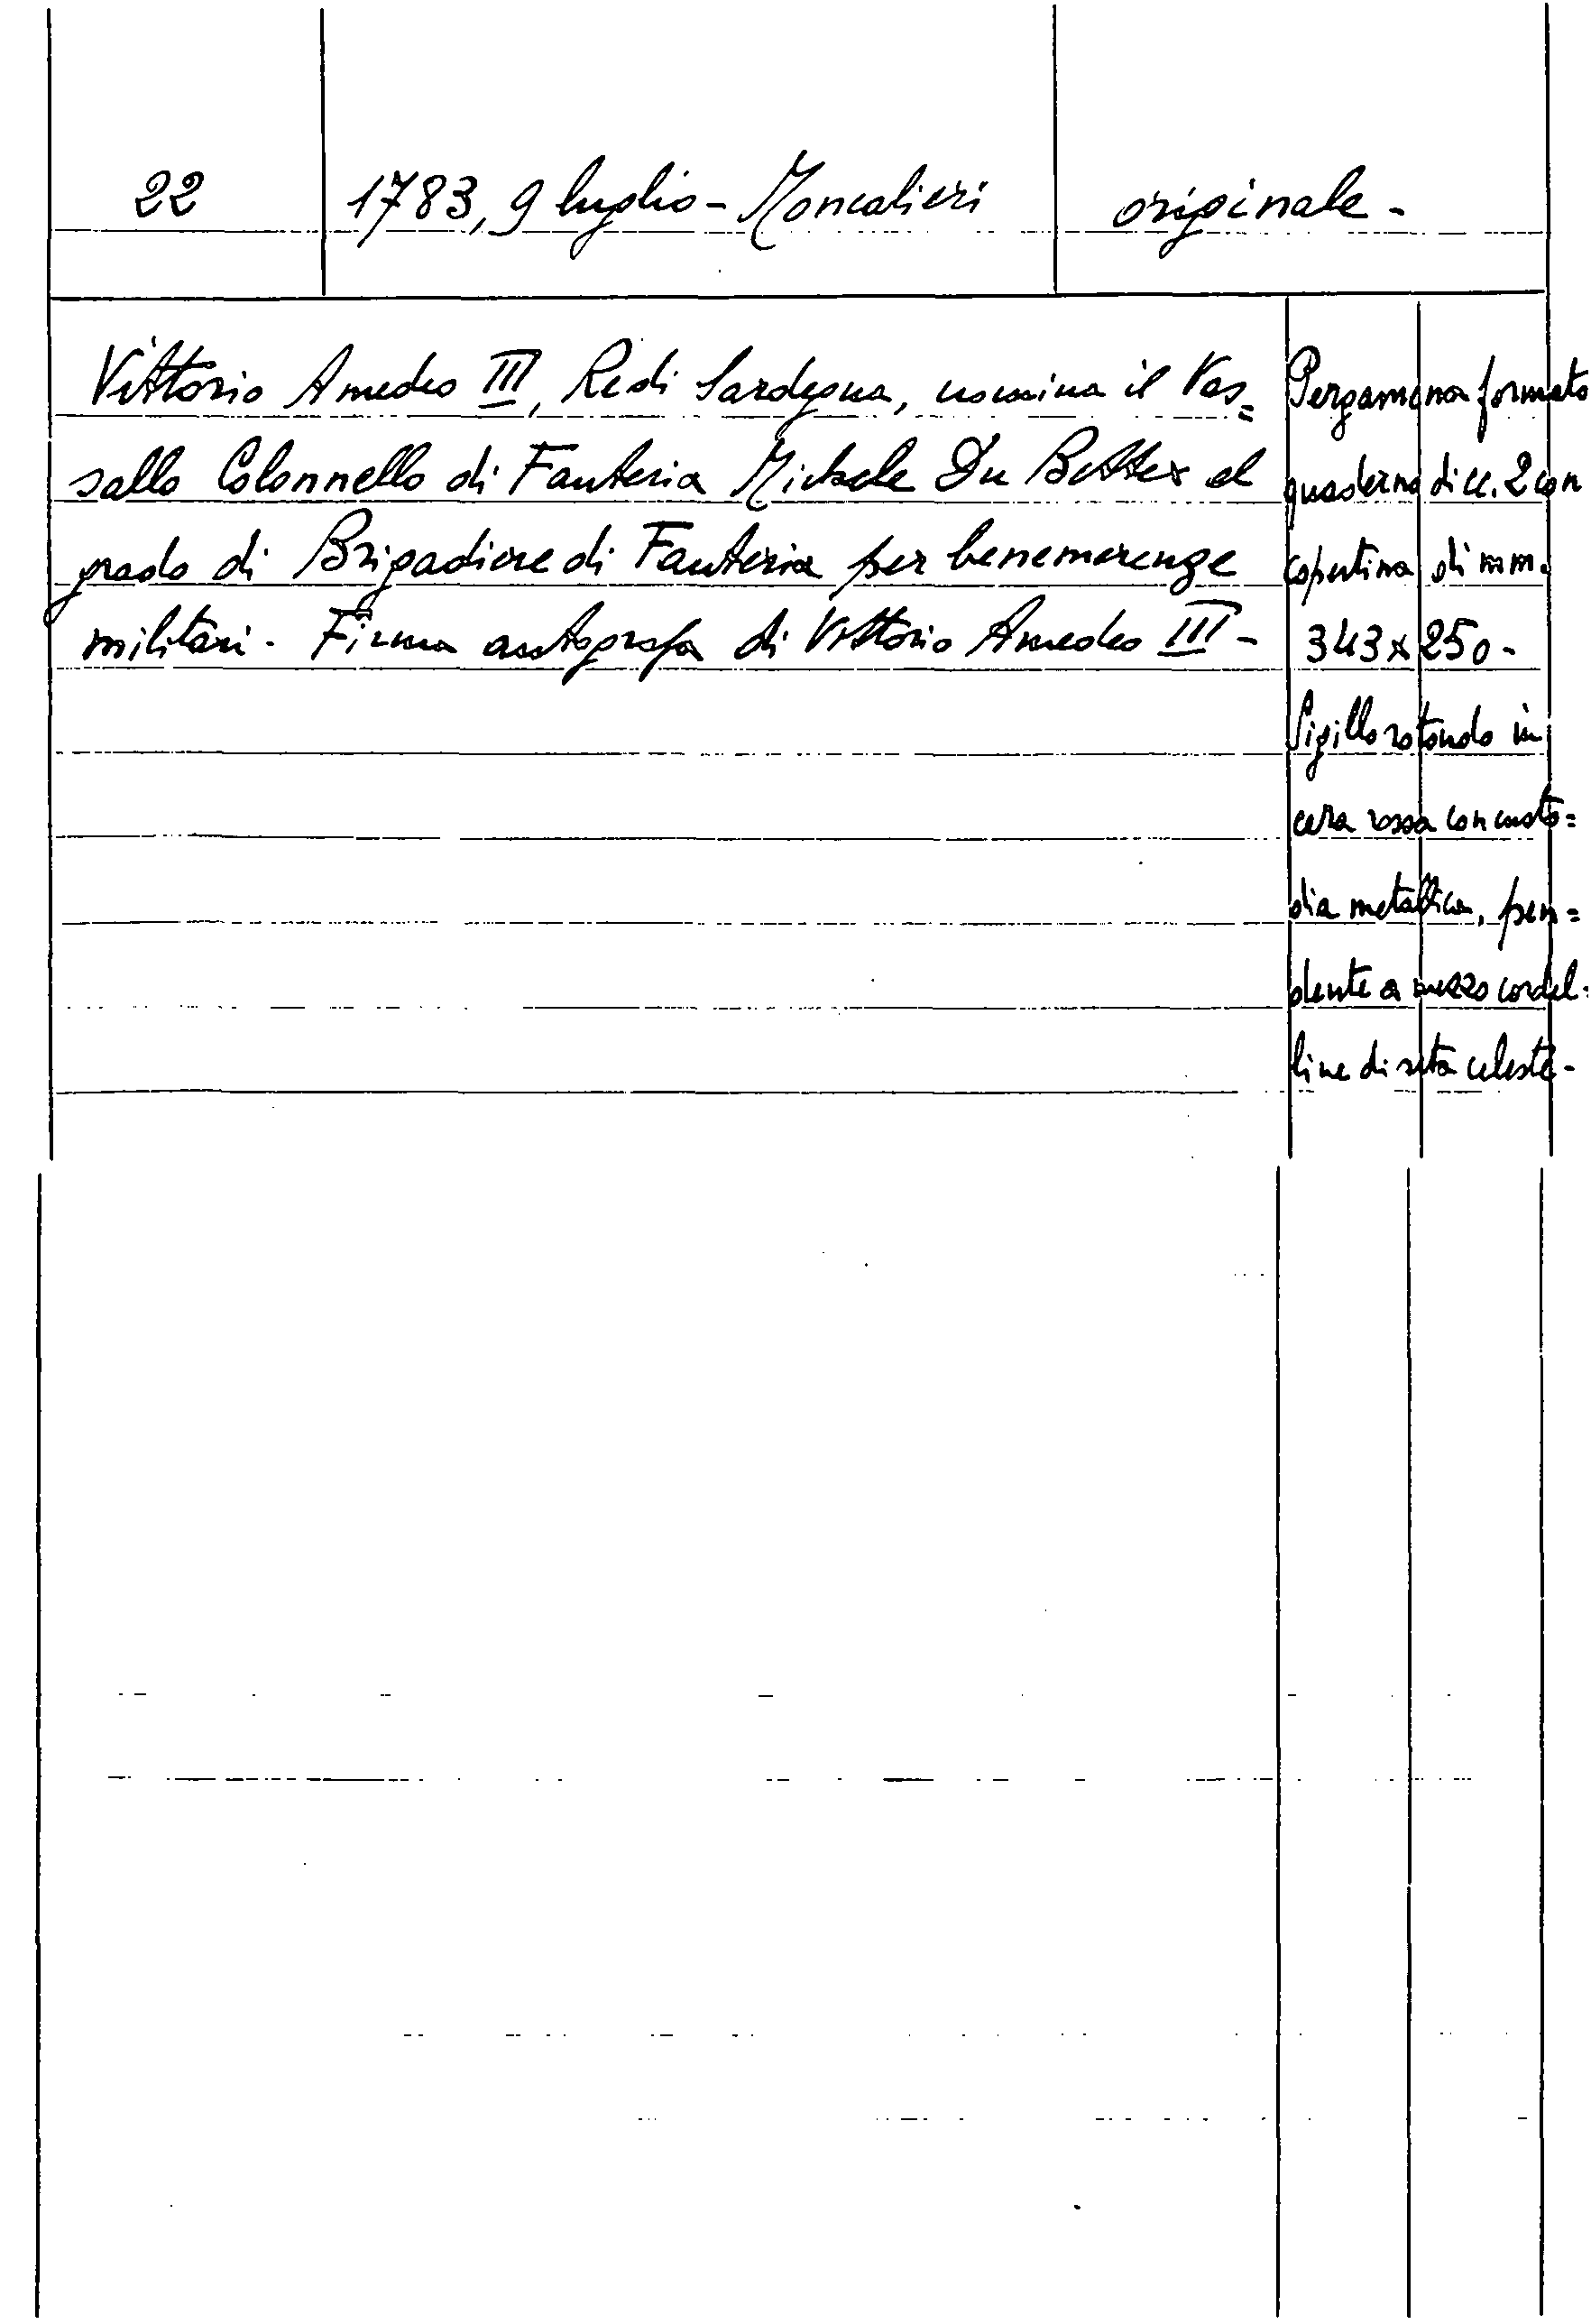 22
1783, 9 luglio - Moncalieri
originale -
Vittorio Amedeo III, Re di Sardegna, nomina il Vas=
sallo Colonnello di Fanteria Michele Du Bottex al
grado di Brigadiere di Fanteria per benemerenze
militari. Firma autografa di Vittorio Amedeo III -
Pergamena formato
quaderno di cc. 2 con
copertina di mm.
343x250-
Sigillo rotondo in
cera rossa con custo=
dia metallica, pen=
dente a mezzo cordel=
line di seta celeste -